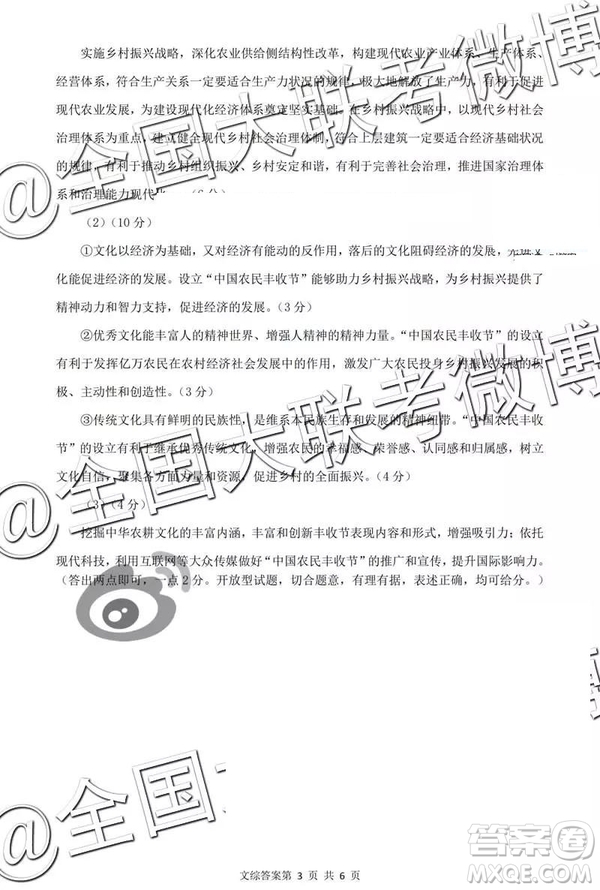 实施乡村振兴战略，深化农业供给侧结构性改革，构建现代农业产业体系、生产体系、
经营体系，符合生产关系一定要适合生产力状况的规律，极大地解放了生产力，有利于促进
现代农业发展，为建设现代化经济体系奠定坚实基础。在乡村振兴战略中，以现代乡村社会
治理体系为重点，建立健全现代乡村社会治理体制，符合上层建筑一定要适合经济基础状况
的规律，有利于推动乡村组织振兴、乡村安定和谐，有利于完善社会治理，推进国家治理体
系和治理能力现代
（2）（10 分）
①文化以经济为基础，又对经济有能动的反作用，落后的文化阻碍经济的发展，先进文
化能促进经济的发展。设立“中国农民丰收节”能够助力乡村振兴战略，为乡村振兴提供了
精神动力和智力支持，促进经济的发展。（3 分）
②优秀文化能丰富人的精神世界、增强人精神的精神力量。“中国农民丰收节”的设立
有利于发挥亿万农民在农村经济社会发展中的作用，激发广大农民投身乡村振兴发展的积
极、主动性和创造性。（3 分）
③传统文化具有鲜明的民族性，是维系本民族生存和发展的精神纽带。“中国农民丰收
节”的设立有利于继承优秀传统文化，增强农民的幸福感、荣誉感、认同感和归属感，树立
文化自信，聚集各方面力量和资源，促进乡村的全面振兴。（4 分）
（3）（4 分）
挖掘中华农耕文化的丰富内涵，丰富和创新丰收节表现内容和形式，增强吸引力；依托
现代科技，利用互联网等大众传媒做好“中国农民丰收节”的推广和宣传，提升国际影响力。
（答出两点即可，一点 2 分。开放型试题，切合题意，有理有据，表述正确，均可给分。）
@全国大联考微博
@全国大联考微博
@全国
答案圈
MXQE.COM
文综答案第 3 页 共 6 页